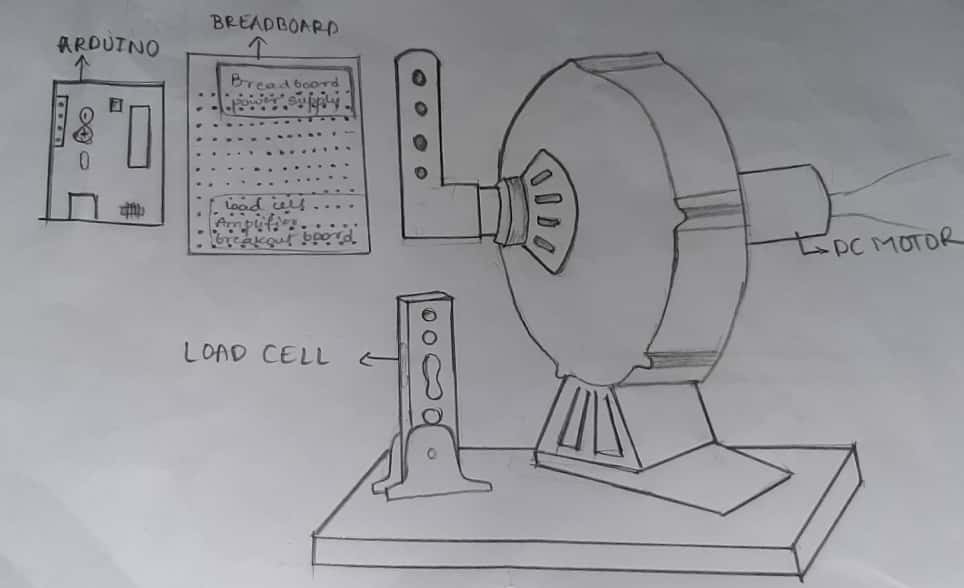 BREADBOARD
ARDUINO
Breadboard
power supply
Load cell
Amplifier
breakout board
DC MOTOR
LOAD CELL